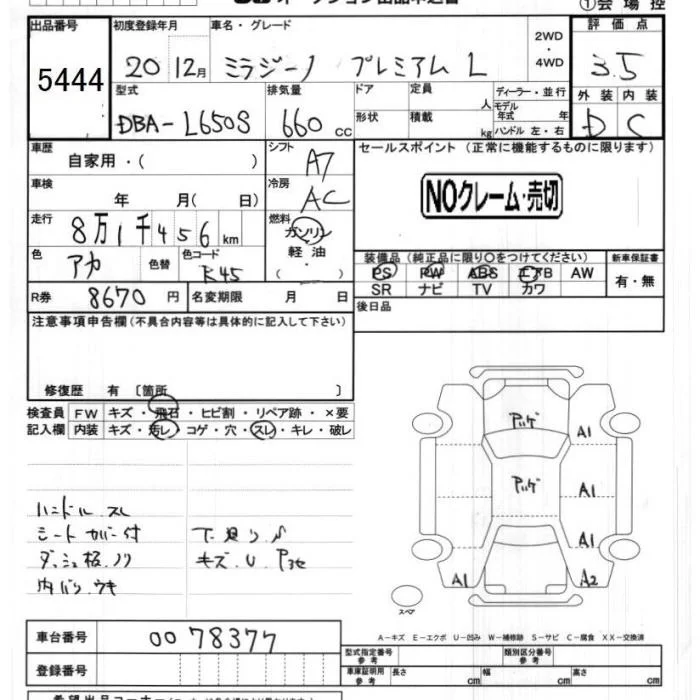 ①会場控
出品番号 初度登録年月 車名・グレード 2WD・4WD 評価点
5444 20 12月 ミラジーノ プレミアムL 3.5
型式 排気量 ドア 定員 人 ディーラー・並行 外装 内装
DBA-L650S 660cc 形状 積載 kg モデル年式 年 D C
ハンドル 左・右
車歴 自家用・( ) シフト A7 セールスポイント (正常に機能するものに限ります)
車検 年 月(日) 冷房 AC NOクレーム・売切
走行 8万1千456km 燃料 ガソリン・軽油・( )
色 アカ 色替 色コード R45 装備品(純正品に限り○をつけてください) 新車保証書
PS PW ABS エアB AW 有・無
SR ナビ TV カワ
R券 8670円 名変期限 月 日 後日品
注意事項申告欄(不具合内容等は具体的に記入して下さい)
修復歴 有 〔箇所 〕
検査員 FW キズ・飛石・ヒビ割・リペア跡・×要
記入欄 内装 キズ・汚レ・コゲ・穴・スレ・キレ・破レ
ハンドル スレ
シートカバー付 下廻り
ダッシュ板ノリ キズ U
内バリ ウキ
A1
A1
A1
A1 A2
スペア
A-キズ E-エクボ U-凹み W-補修跡 S-サビ C-腐食 XX-交換済
車台番号 0078377
型式指定番号 参考 類別区分番号 参考
登録番号 車庫証明用 参考 長さ cm 幅 cm 高さ cm